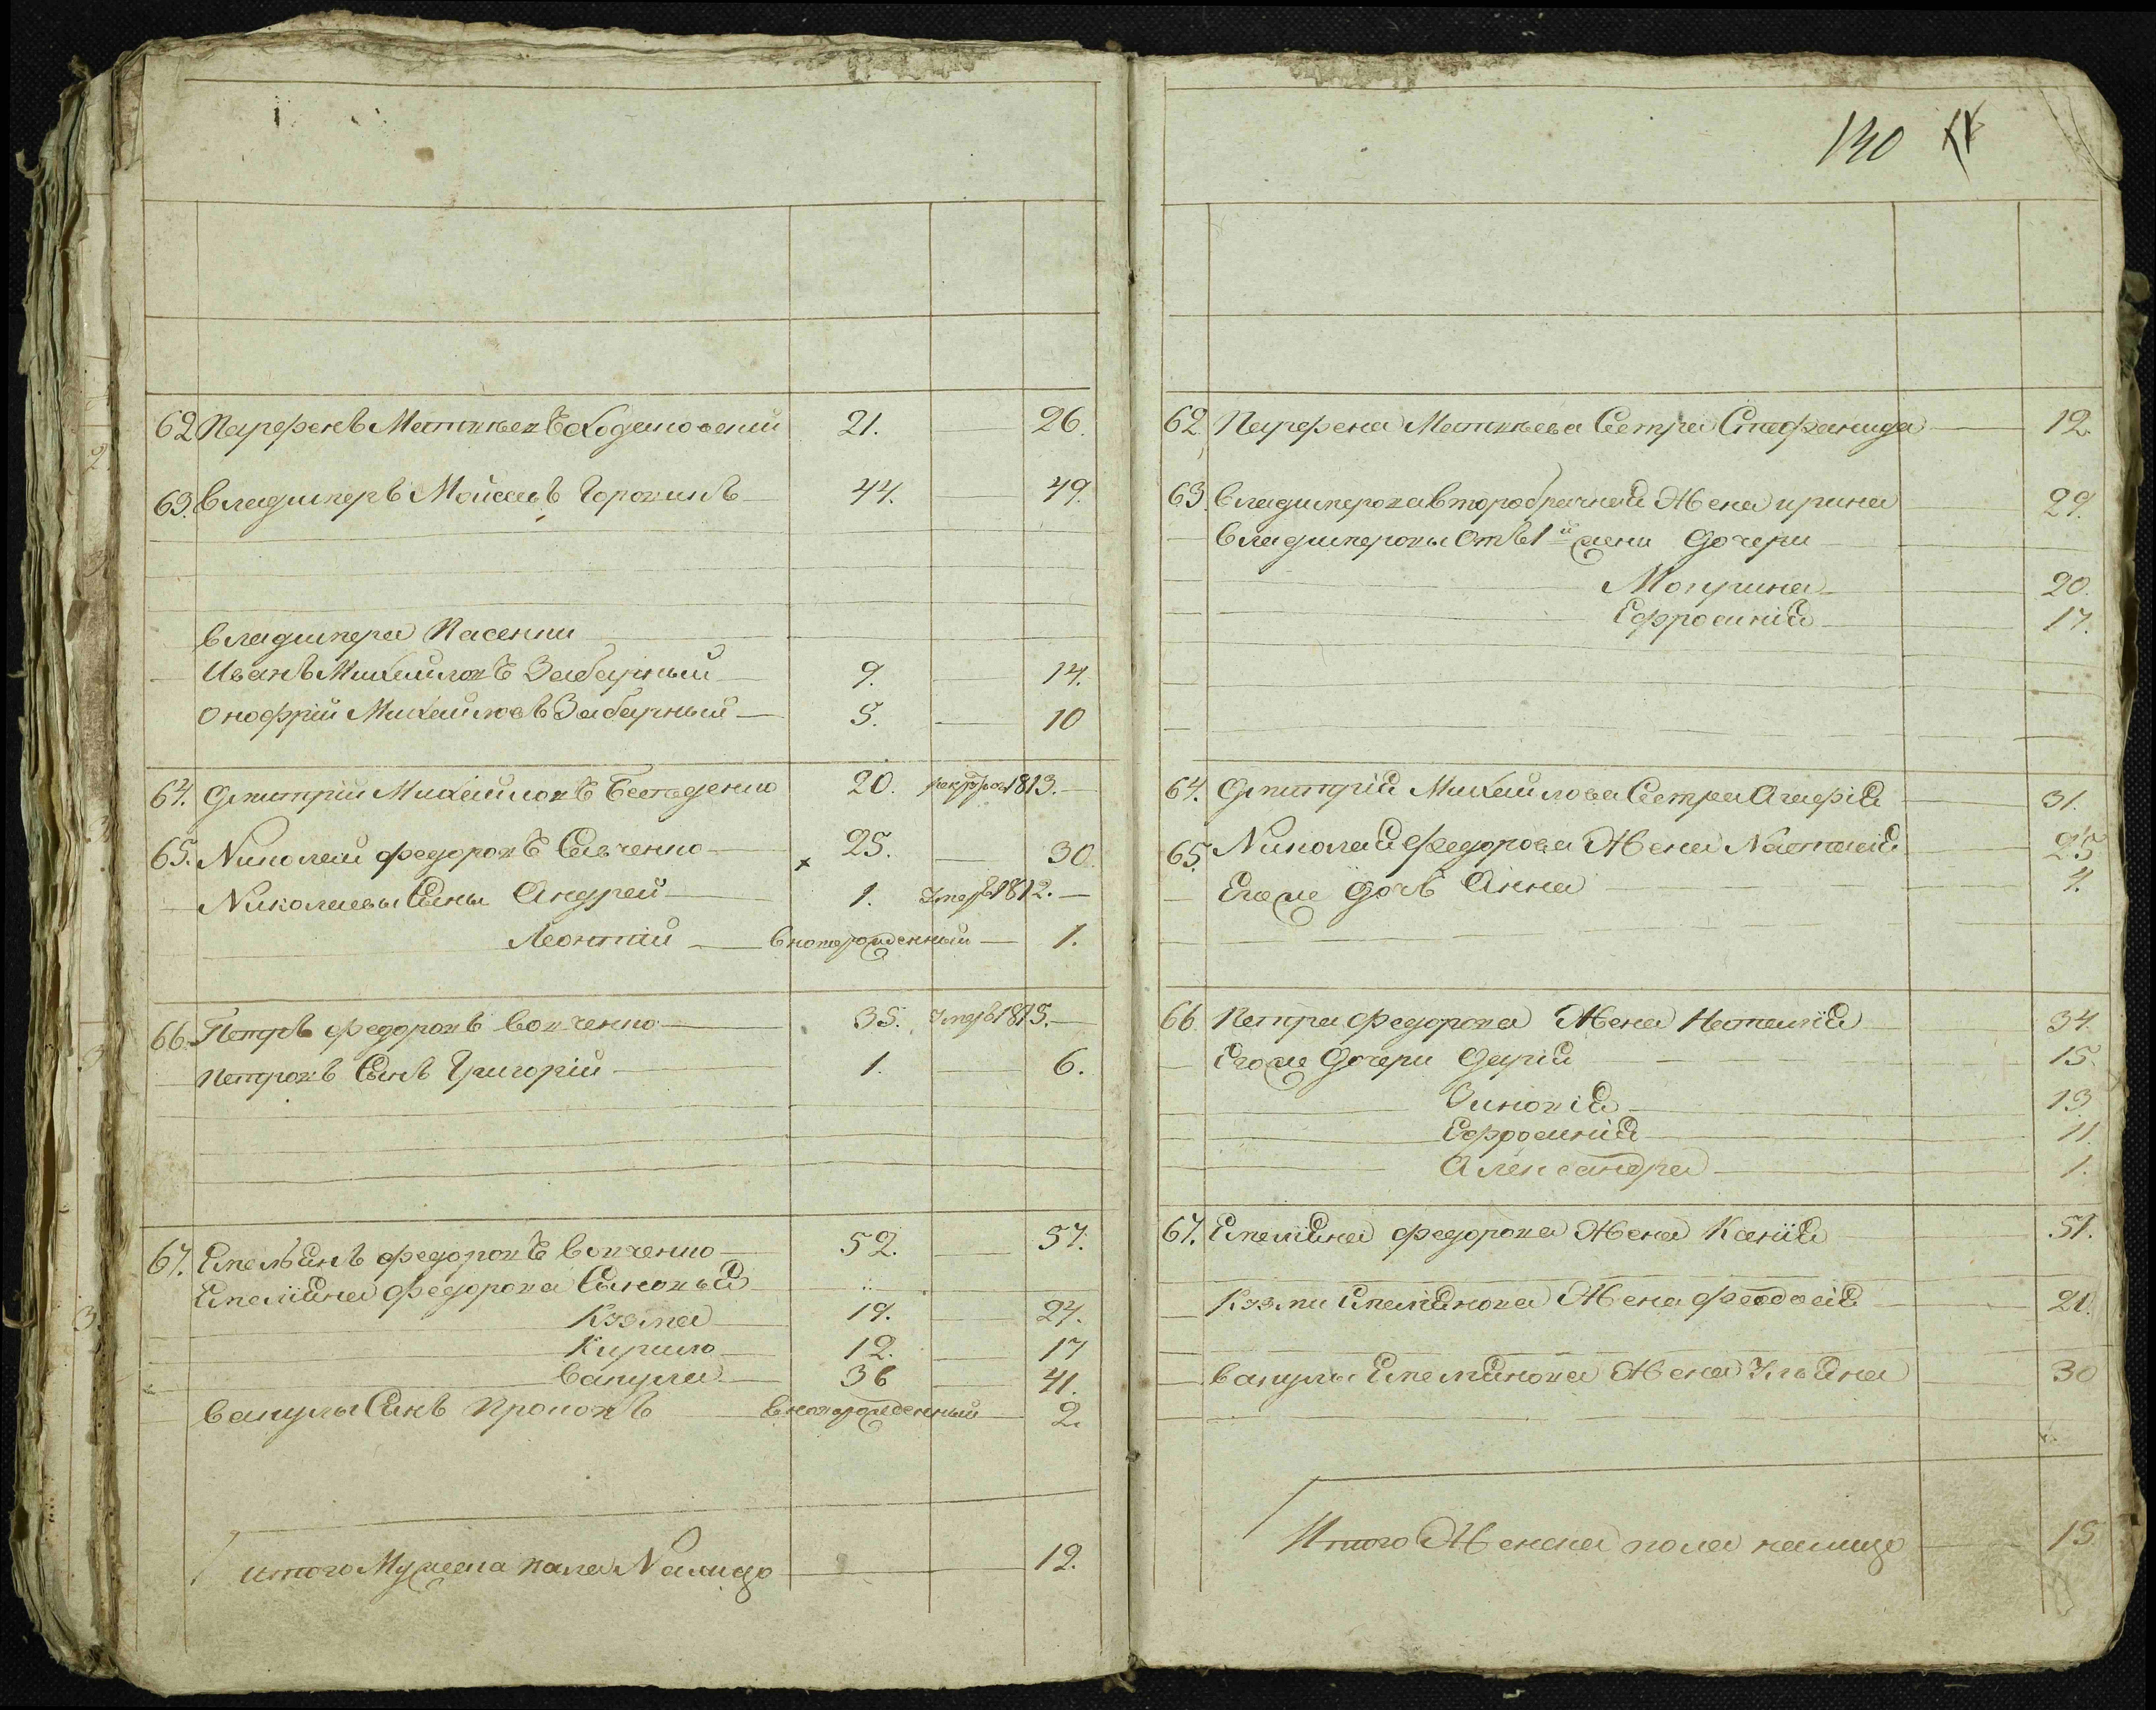 62. Парфенъ Матвѣевъ 21. 26.
63. Владимеръ Мойсеевъ Горохинъ 44. 49.
Владимера Пасенки
Иванъ Михайловъ Забарный 9. 14.
Онофрій Михайловъ Забарный 5. 10
64. Дмитрій Михайловъ 20. 1813.
65. Николай Федоровъ Савченко 25. 30.
Николаевы Сыны Андрей 1. умеръ 1812.
Леонтий вноворожденный 1.
66. Петръ Федоровъ Вовченко 35. умеръ 1815.
Петровъ Сынъ Григорій 1. 6.
67. Емельянъ Федоровъ Вовченко 52. 57.
Емеліяна Федорова Сыновья
Кузма 19. 24.
Кирило 12. 17
Вакула 36 41.
Вакулы Сынъ Прокопъ вноворожденный 2.
итого Мужеска пола Налицо 12.
130
62. Парфена Матвѣева Сестра Стефанида 12.
63. Владимерова второбрачная Жена ирина 29.
Владимеровы Отъ 1й жены Дочери
Мокрина 20.
Ефросинія 17.
64. Дмитрія Михайлова Сестра Агафія 31.
65. Николая Федорова Жена Настасія 25
Егоже Дочь Анна 4.
66. Петра Федорова Жена Наталія 34.
Егоже Дочери Дарія 15.
Зиновія 13.
Ефросинія 11.
Александра 1.
67. Емеліяна Федорова Жена Ксенія 51.
Кузмы Емельянова Жена Феодосія 20.
Вакулы Емельянова Жена Ульяна 30
Итого Женска пола налицо 15